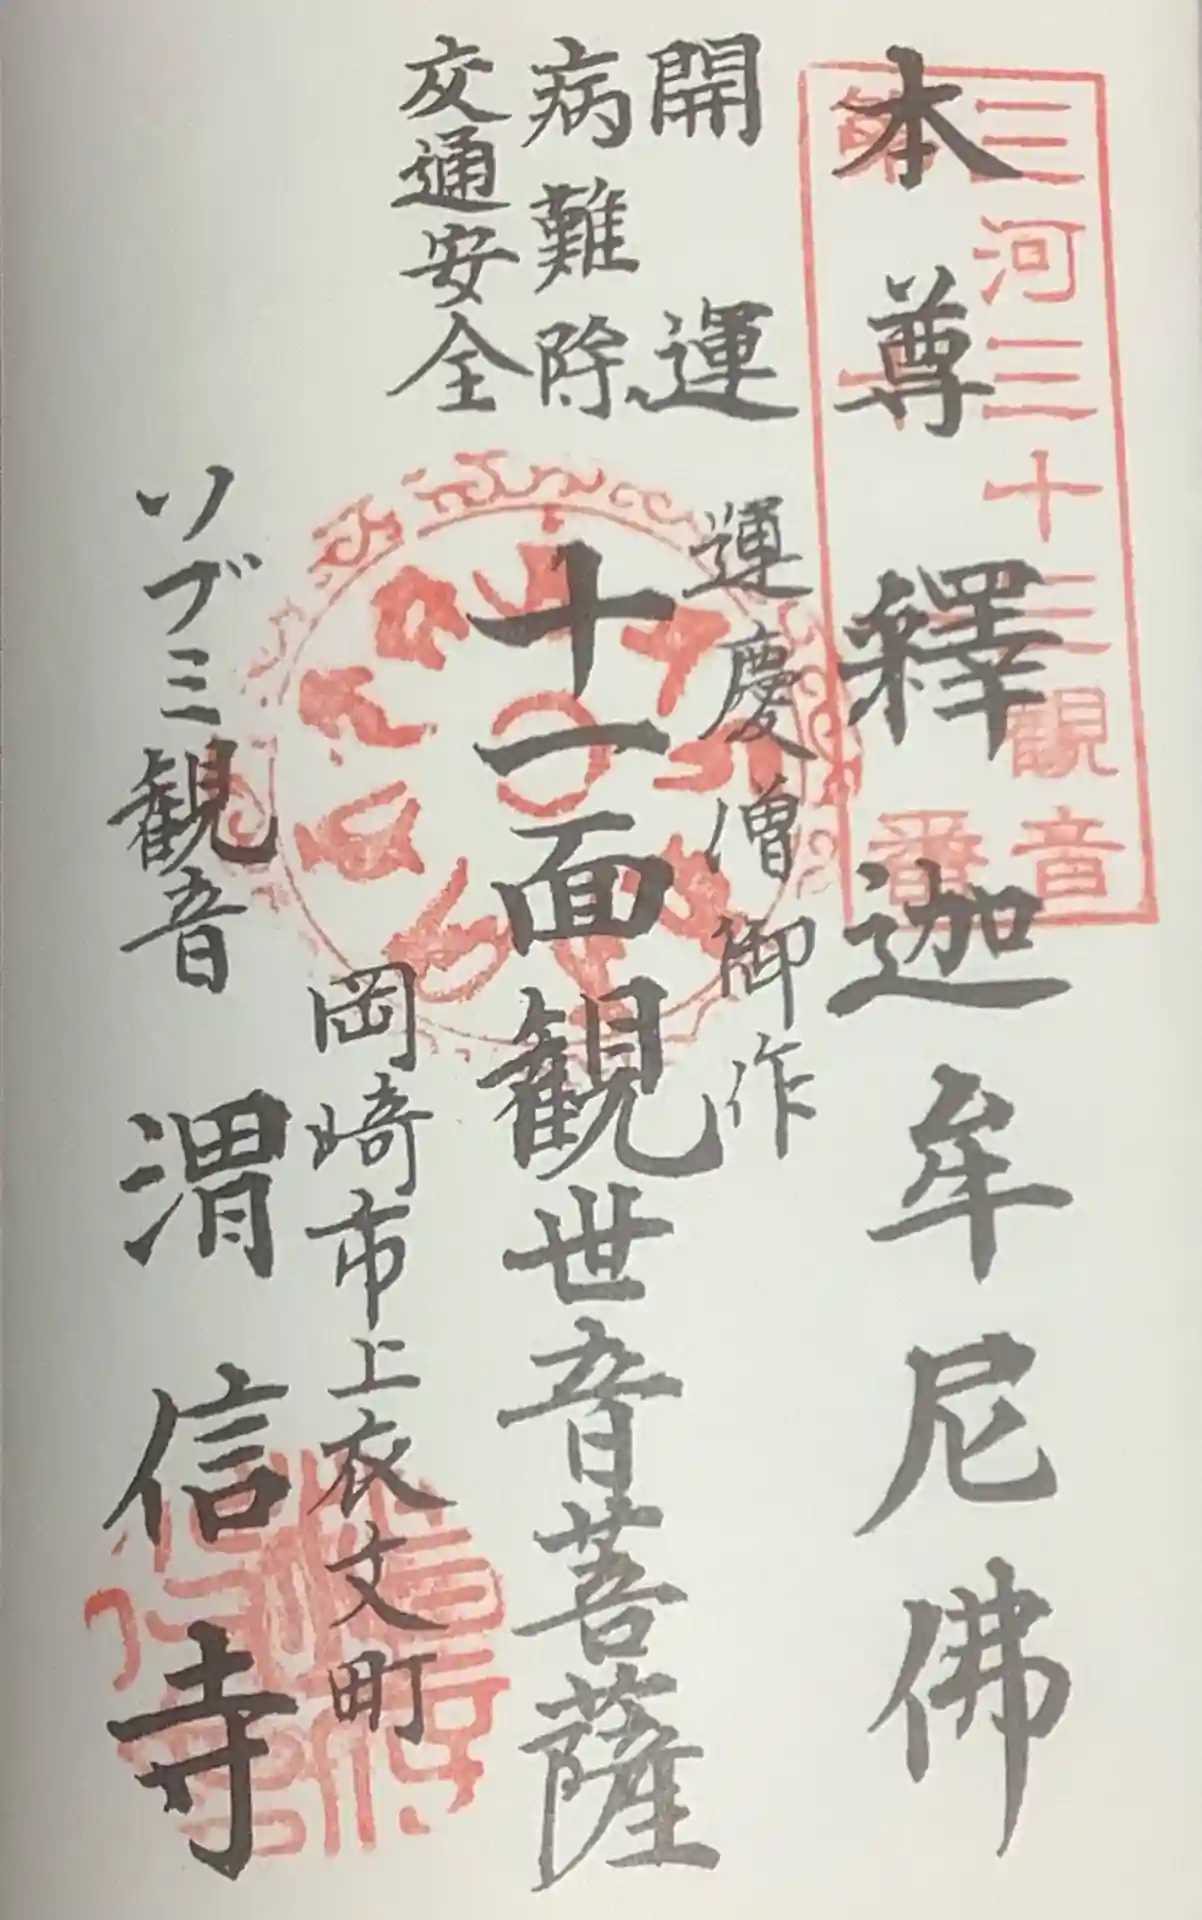 三河三十三観音
第十番
本尊釋迦牟尼佛
開運
病難除
交通安全
運慶僧御作
十一面観世音菩薩
岡崎市上衣文町
ソブミ観音
渭信寺